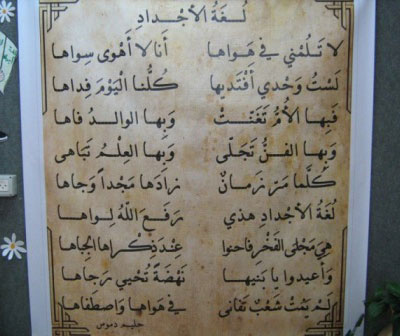 لُغَةُ الأجْدادِ
لا تَلُمْني في هَواها أَنا لا أَهْوى سِواها
لَسْتُ وَحْدي أَفْتَديها كُلُّنا الْيَوْمَ فِداها
فَبِها الأُمُّ تَغَنَّتْ وَبِها الوالِدُ فاها
وَبِها الفَنُّ تَجَلّى وَبِها العِلْمُ تَباهى
كُلَّما مَرَّ زَمانٌ زادَها مَجْداً وَجاها
لُغَةُ الأجْدادِ هذي رَفَعَ اللّهُ لِواها
هِيَ مَجْلى الفَخْرِ فاحنوا عِنْدَ ذِكْراها الجِباها
وَأَعيدوا يا بَنيها نَهْضَةً تُحْيي رَجاها
لَمْ يَمُتْ شَعْبٌ تَفانى في هَواها وَاصْطَفاها
حليم دموس